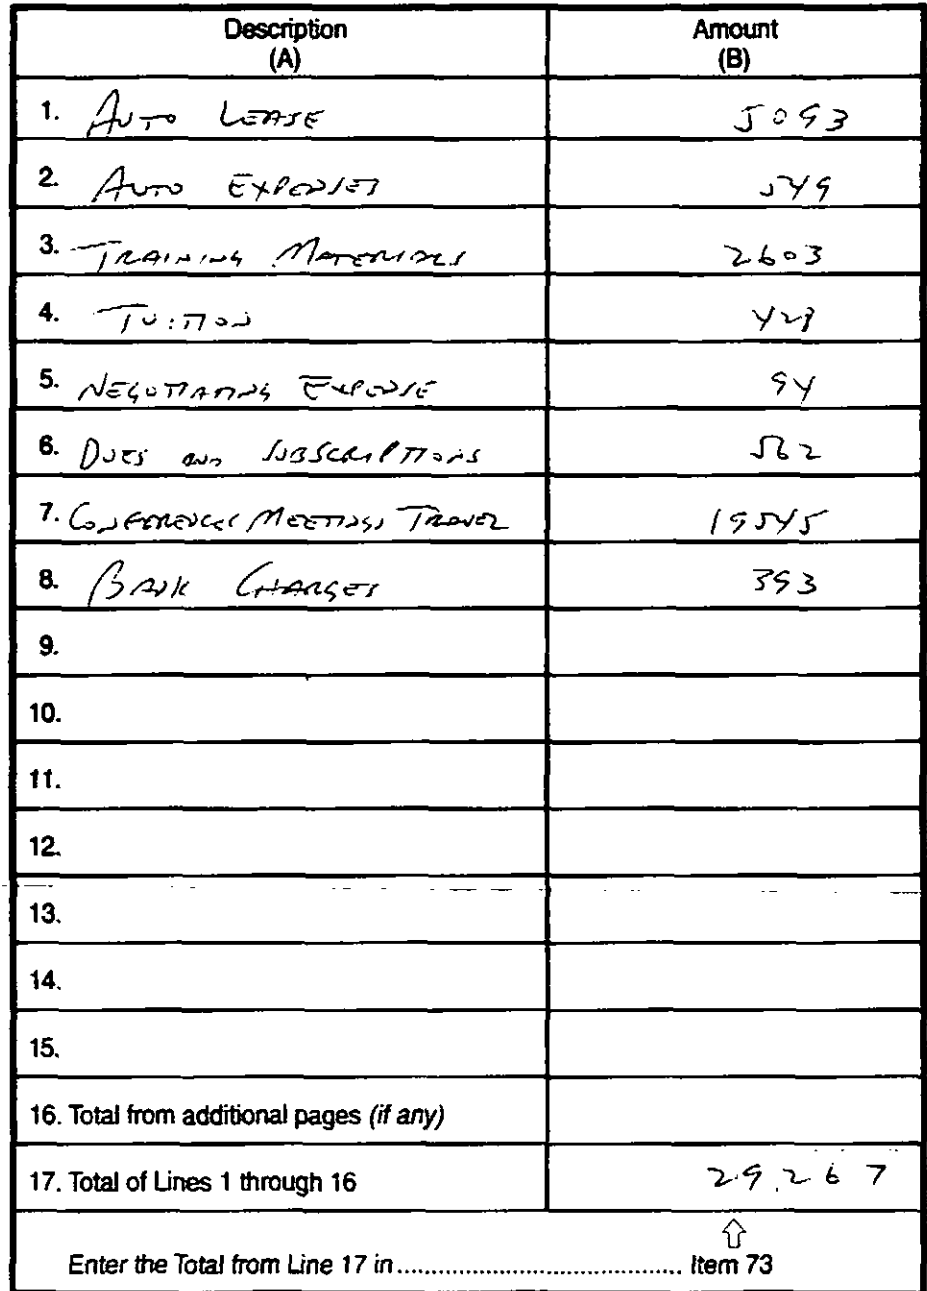 Description Amount
(A) (B)
1. AUTO LEASE 5093
2. AUTO EXPENSES 549
3. TRAINING MATERIALS 2603
4. TUITION 428
5. NEGOTIATING EXPENSE 94
6. DUES AND SUBSCRIPTIONS 562
7. CONFERENCES MEETINGS TRAVEL 19545
8. BANK CHARGES 393
9.
10.
11.
12.
13.
14.
15.
16. Total from additional pages (if any)
17. Total of Lines 1 through 16 29,267
Enter the Total from Line 17 in ........................................ Item 73